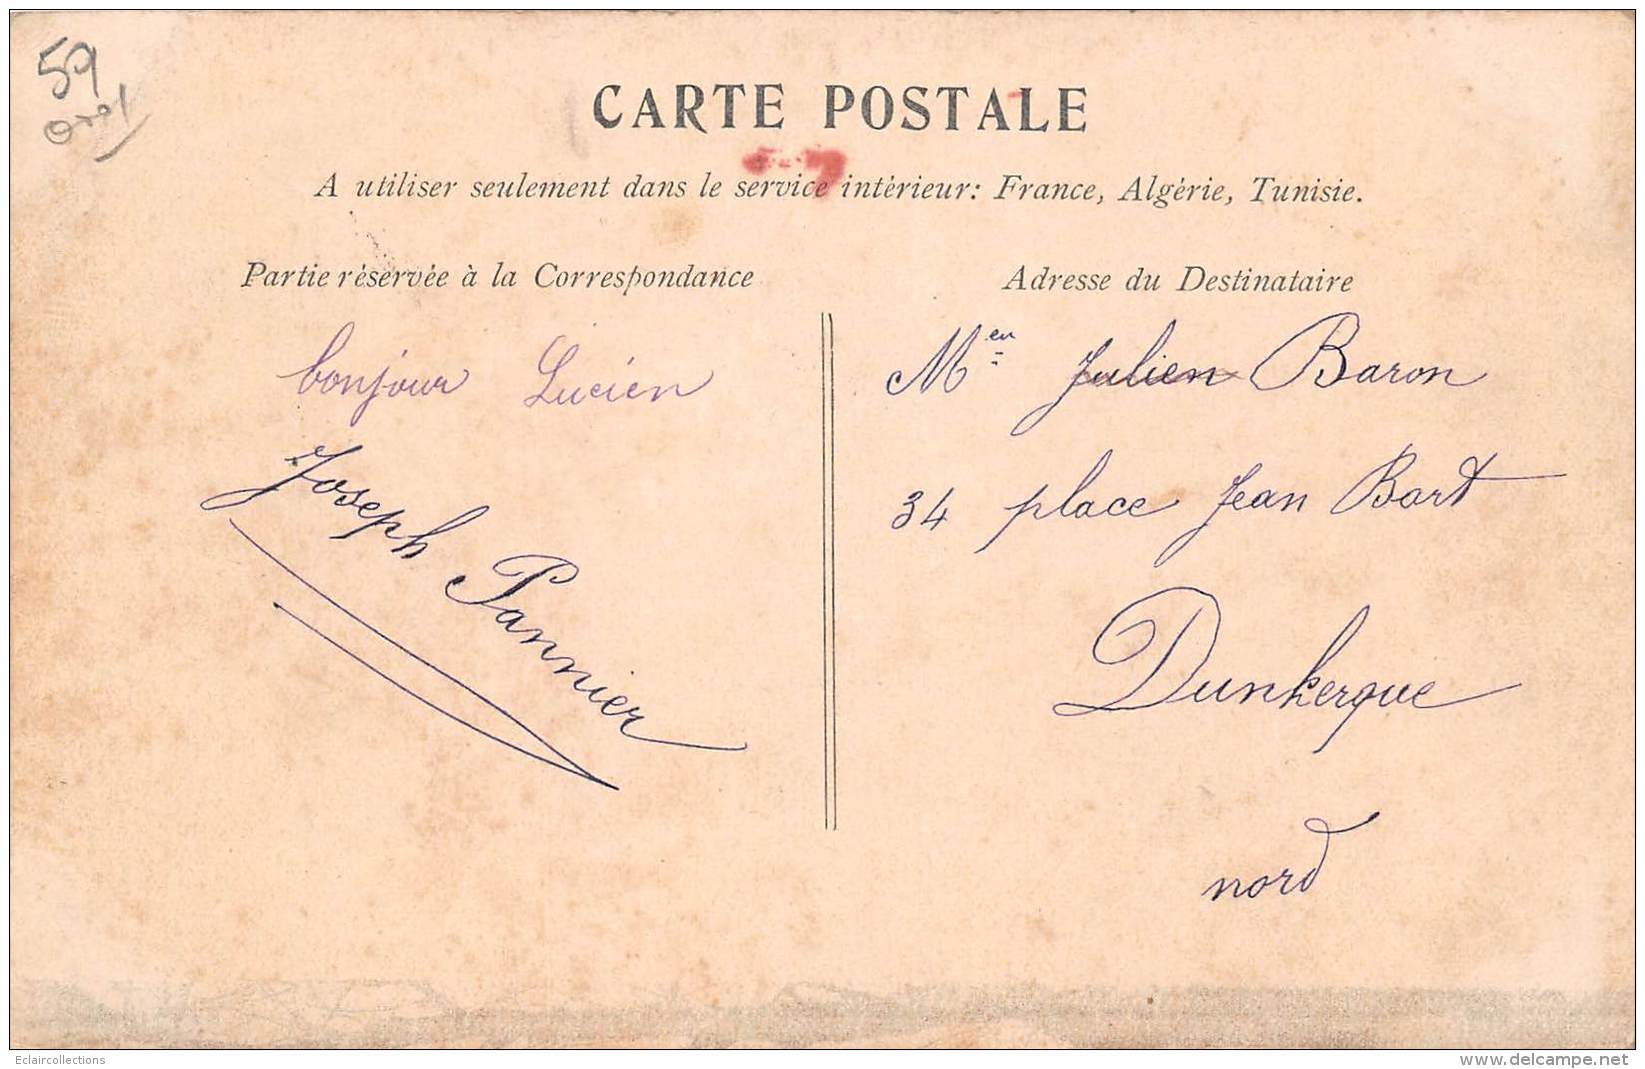 59
CARTE POSTALE
A utiliser seulement dans le service intérieur: France, Algérie, Tunisie.
Partie réservée à la Correspondance
bonjour Lucien
Joseph Pannier
Adresse du Destinataire
M Julien Baron
34 place Jean Bart
Dunkerque
nord
Eclaircollections
delcampe.net